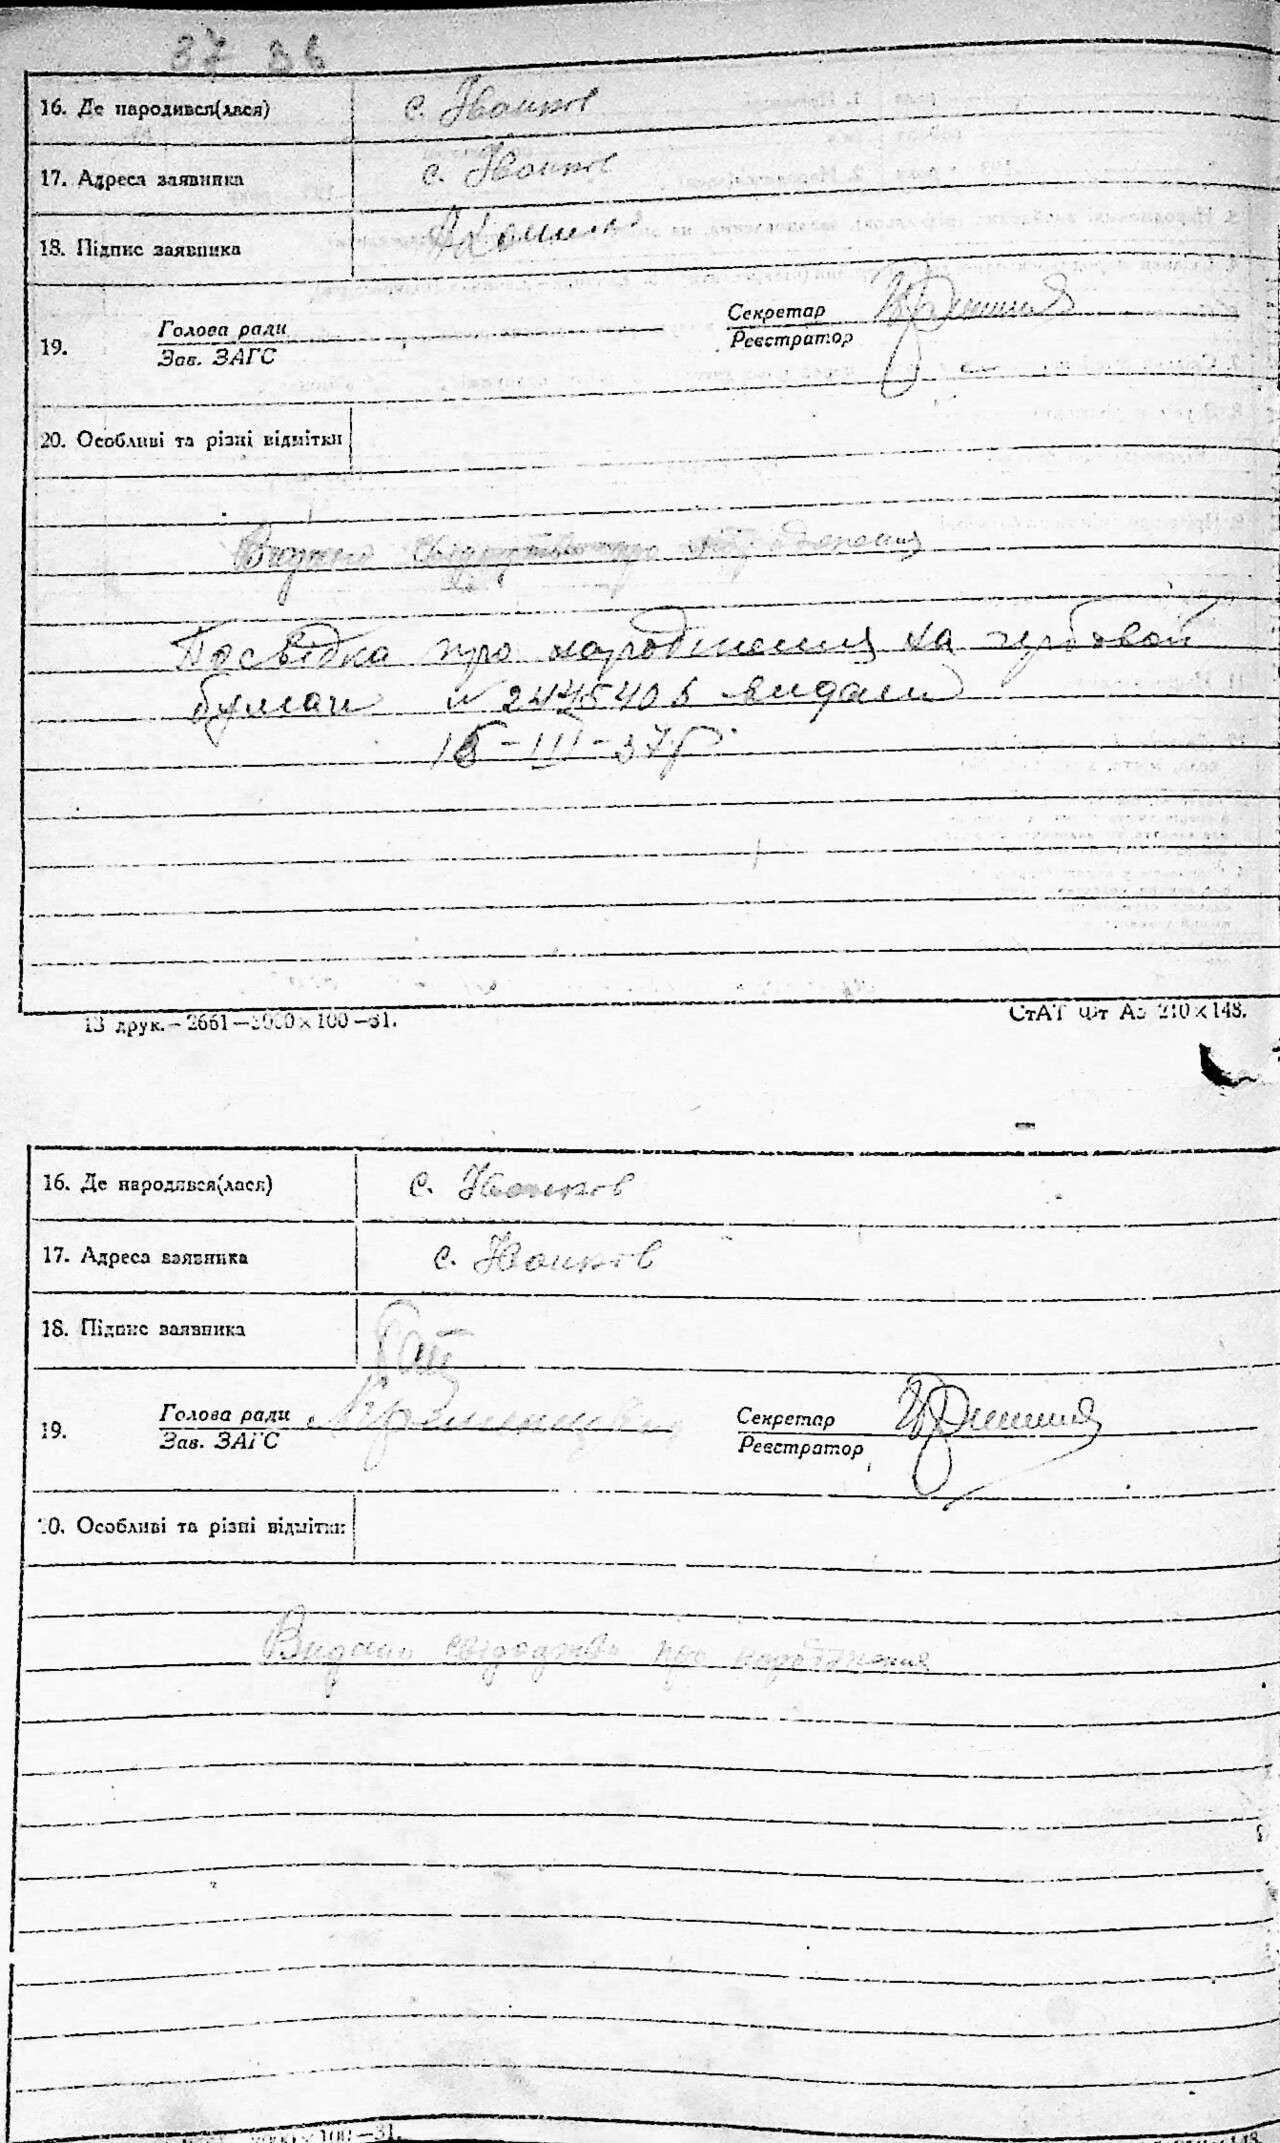 37 зв
16. Де народився(лася) с. Іванков
17. Адреса заявника с. Іванков
18. Підпис заявника
19. Голова ради Секретар
Зав. ЗАГС Реєстратор
20. Особливі та різні відмітки
Видано свідоцтво про народження
Посвідка про народження на гербовой
бумаги № видан
III-37р.
13 друк.–2661–3000×100–31. СтАТ Фт А5 210×148.
16. Де народився(лася) с. Іванков
17. Адреса заявника с. Іванков
18. Підпис заявника
19. Голова ради Секретар
Зав. ЗАГС Реєстратор
20. Особливі та різні відмітки
Видано свідоцтво про народження
×100–31. 148.